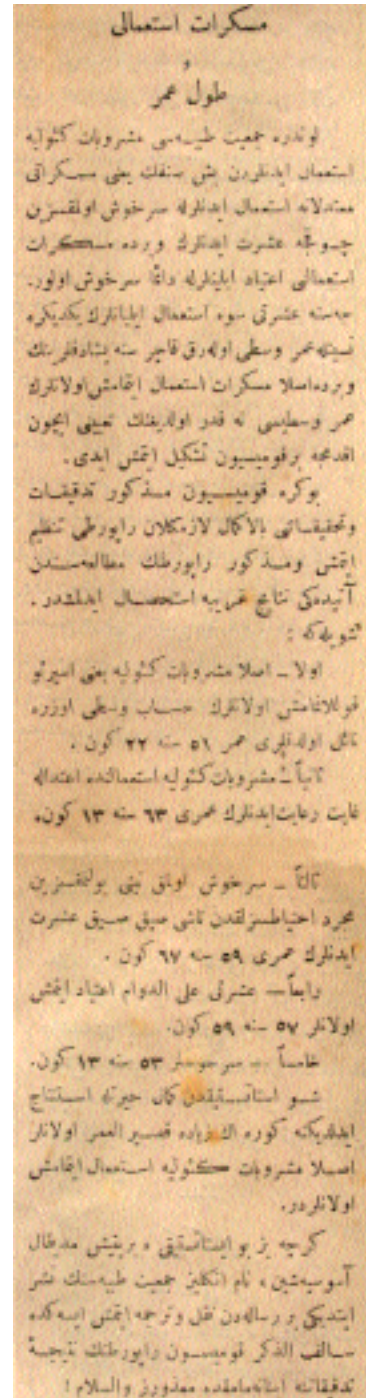 مسكرات استعمالی
و
طول عمر
لوندره جمعیت طبیه‌سی مشروبات كئولیه
استعمال ایدنلردن بش صنفك یعنی مسكراتی
معتدلانه استعمال ایدنلرله سرخوش اولمقسزین
چوقجه عشرت ایدنلرك و برده مسكرات
استعمالی اعتیاد ایلینلرله دائما سرخوش اولور.
جه‌سنه عشرتی سوء استعمال ایلیانلرك یكدیكره
نسبتله عمر وسطی اوله‌رق قاچر سنه یشادقلرینك
و برده اصلا مسكرات استعمال ایتمامش اولانلرك
عمر وسطیسی نه قدر اولدیغنك تعیینی ایچون
اقدمجه بر قومیسیون تشكیل ایتمش ایدی.
بوكره قومیسیون مذكور تدقیقات
و تحقیقاتنی بالاكمال لازمكلان راپورطی تنظیم
ایتمش و مذكور راپورطك مطالعه‌سندن
آتیده‌كی نتایج غریبه استحصال ایدلمشدر.
شویله‌كه :
اولا ــ اصلا مشروبات كئولیه یعنی اسپرتو
قوللانمامش اولانلرك حساب وسطی اوزره
نائل اولدقلری عمر ٥١ سنه ٢٢ كون .
ثانیاً ــ مشروبات كئولیه استعمالنده اعتداله
غایت رعایت ایدنلرك عمری ٦٣ سنه ١٣ كون.
ثالثاً ــ سرخوش اولمق نیتی بولنمقسزین
مجرد احتیاطسزلقدن ناشی صیق صیق عشرت
ایدنلرك عمری ٥٩ سنه ٦٧ كون .
رابعاً ــ عشرتی علی الدوام اعتیاد ایتمش
اولانلر ٥٧ سنه ٥٩ كون.
خامساً ــ سرخوشلر ٥٣ سنه ١٣ كون.
شو استاتستیقدن كمال حیرتله استنتاج
ایدلدیكنه كوره اك زیاده قصیر العمر اولانلر
اصلا مشروبات كئولیه استعمال ایتمامش
اولانلردر.
كرچه بز بو ایستاتستیقی ، بریتیش مدیقال
آسوسیه‌شین ، نام انكلیز جمعیت طبیه‌سنك نشر
ایتدیكی بر رساله‌دن نقل و ترجمه ایتمش ایسه‌كده
سالف الذكر قومیسیون راپورطنك نتیجهٔ
تدقیقاتنه اینانمامقده معذورز والسلام !